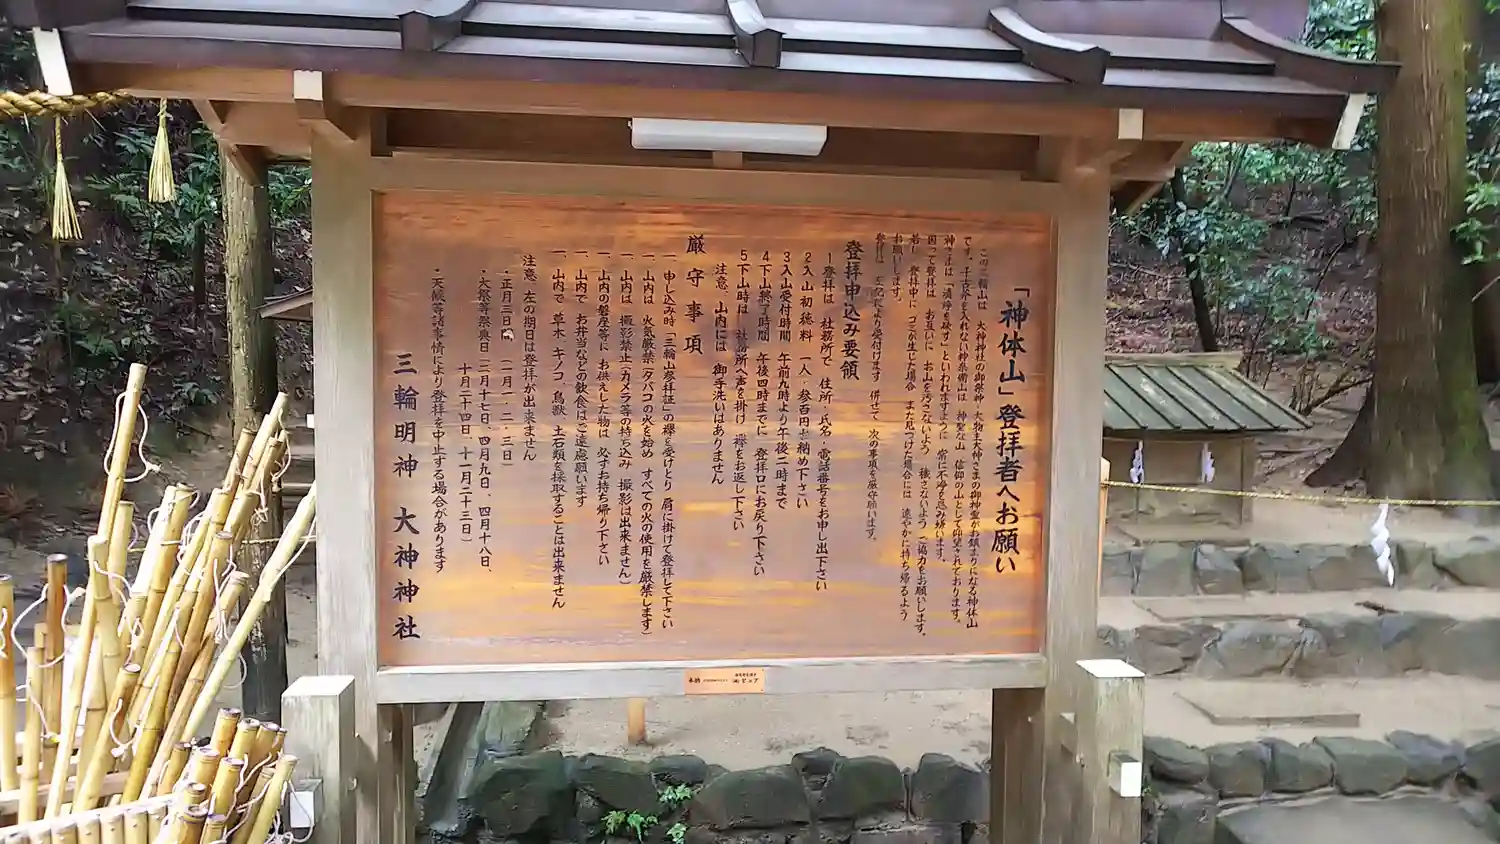 「神体山」登拝者へお願い
この三輪山は 大神神社の御祭神・大物主大神さまの御神霊がお鎮まりになる神体山
です。千古斧を入れない神奈備山は 神聖な山 信仰の山として仰望されております。
神さまは「清浄を
」といわれますように 常に不浄を忌み嫌います。
因って登拝は お互いに お山を汚さないよう 穢さないよう ご協力をお願いします。
若し 登拝中に ゴミが生じた場合 また見つけた場合には 速やかに持ち帰るよう
お願いします。
登拝は 左記により受付けます 併せて 次の事項を厳守願います。
登拝申込み要領
1登拝は 社務所で 住所・氏名・電話番号をお申し出下さい
2入山初穂料 一人・参百円お納め下さい
3入山受付時間 午前九時より午後二時まで
4下山終了時間 午後四時までに 登拝口にお戻り下さい
5下山時は 社務所へ声を掛け 襷をお返し下さい
注意 山内には 御手洗いはありません
厳守事項
一、申し込み時「三輪山参拝証」の襷を受けとり 肩に掛けて登拝して下さい
一、山内は 火気厳禁(タバコの火を始め すべての火の使用を厳禁します)
一、山内は 撮影禁止(カメラ等の持ち込み 撮影は出来ません)
一、山内の磐座等に お供えした物は 必ずお持ち帰り下さい
一、山内で お弁当などの飲食はご遠慮願います
一、山内で 草木・キノコ・鳥獣・土石類を採取することは出来ません
注意 左の期日は登拝が出来ません
・正月三日間 (一月一・二・三日)
・大祭等祭典日(二月十七日、四月九日、四月十八日、
十月二十四日、十一月二十三日)
・天候等諸事情により登拝を中止する場合があります
三輪明神 大神神社